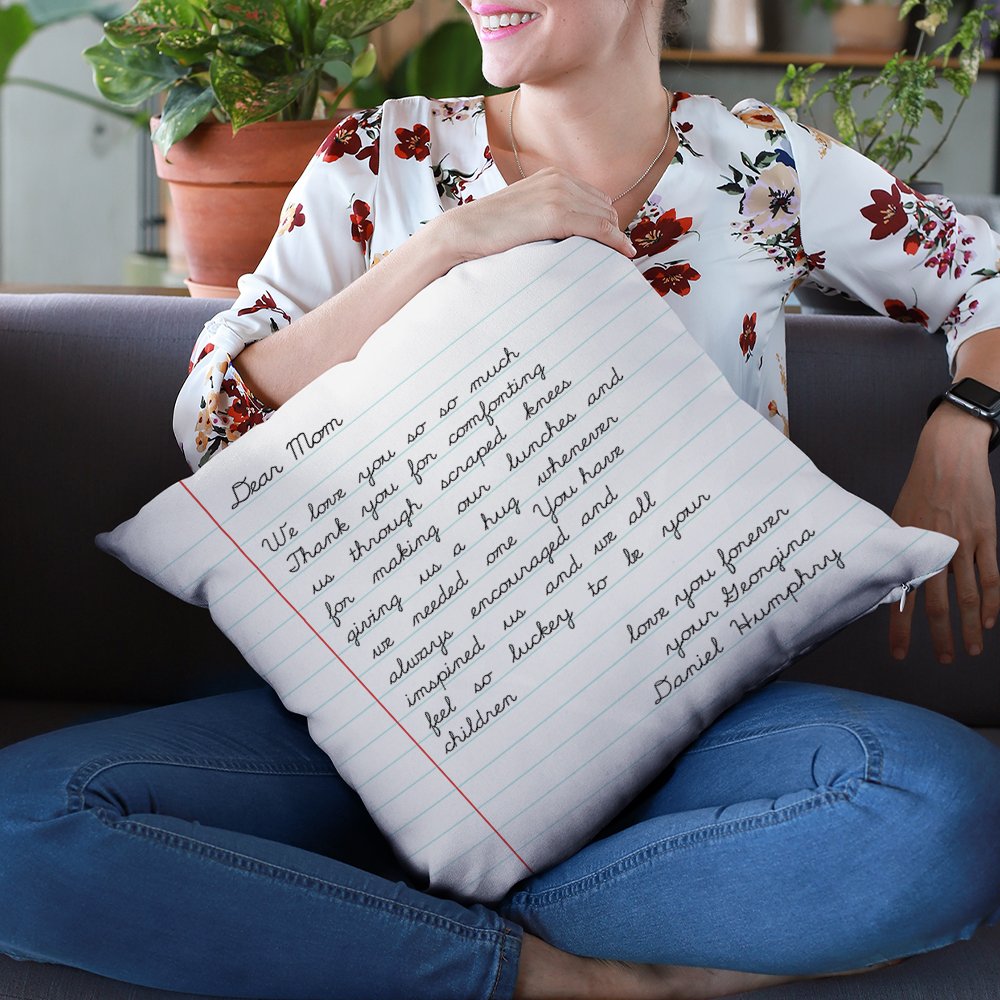 Dear Mom
We love you so so much
Thank you for comfonting
us through scraped knees
for making our lunches and
giving us a hug whenever
we needed one You have
always encouraged and
imspined us and we all
feel so luckey to be your
children
love you fonever
your Georgina
Daniel Humphry